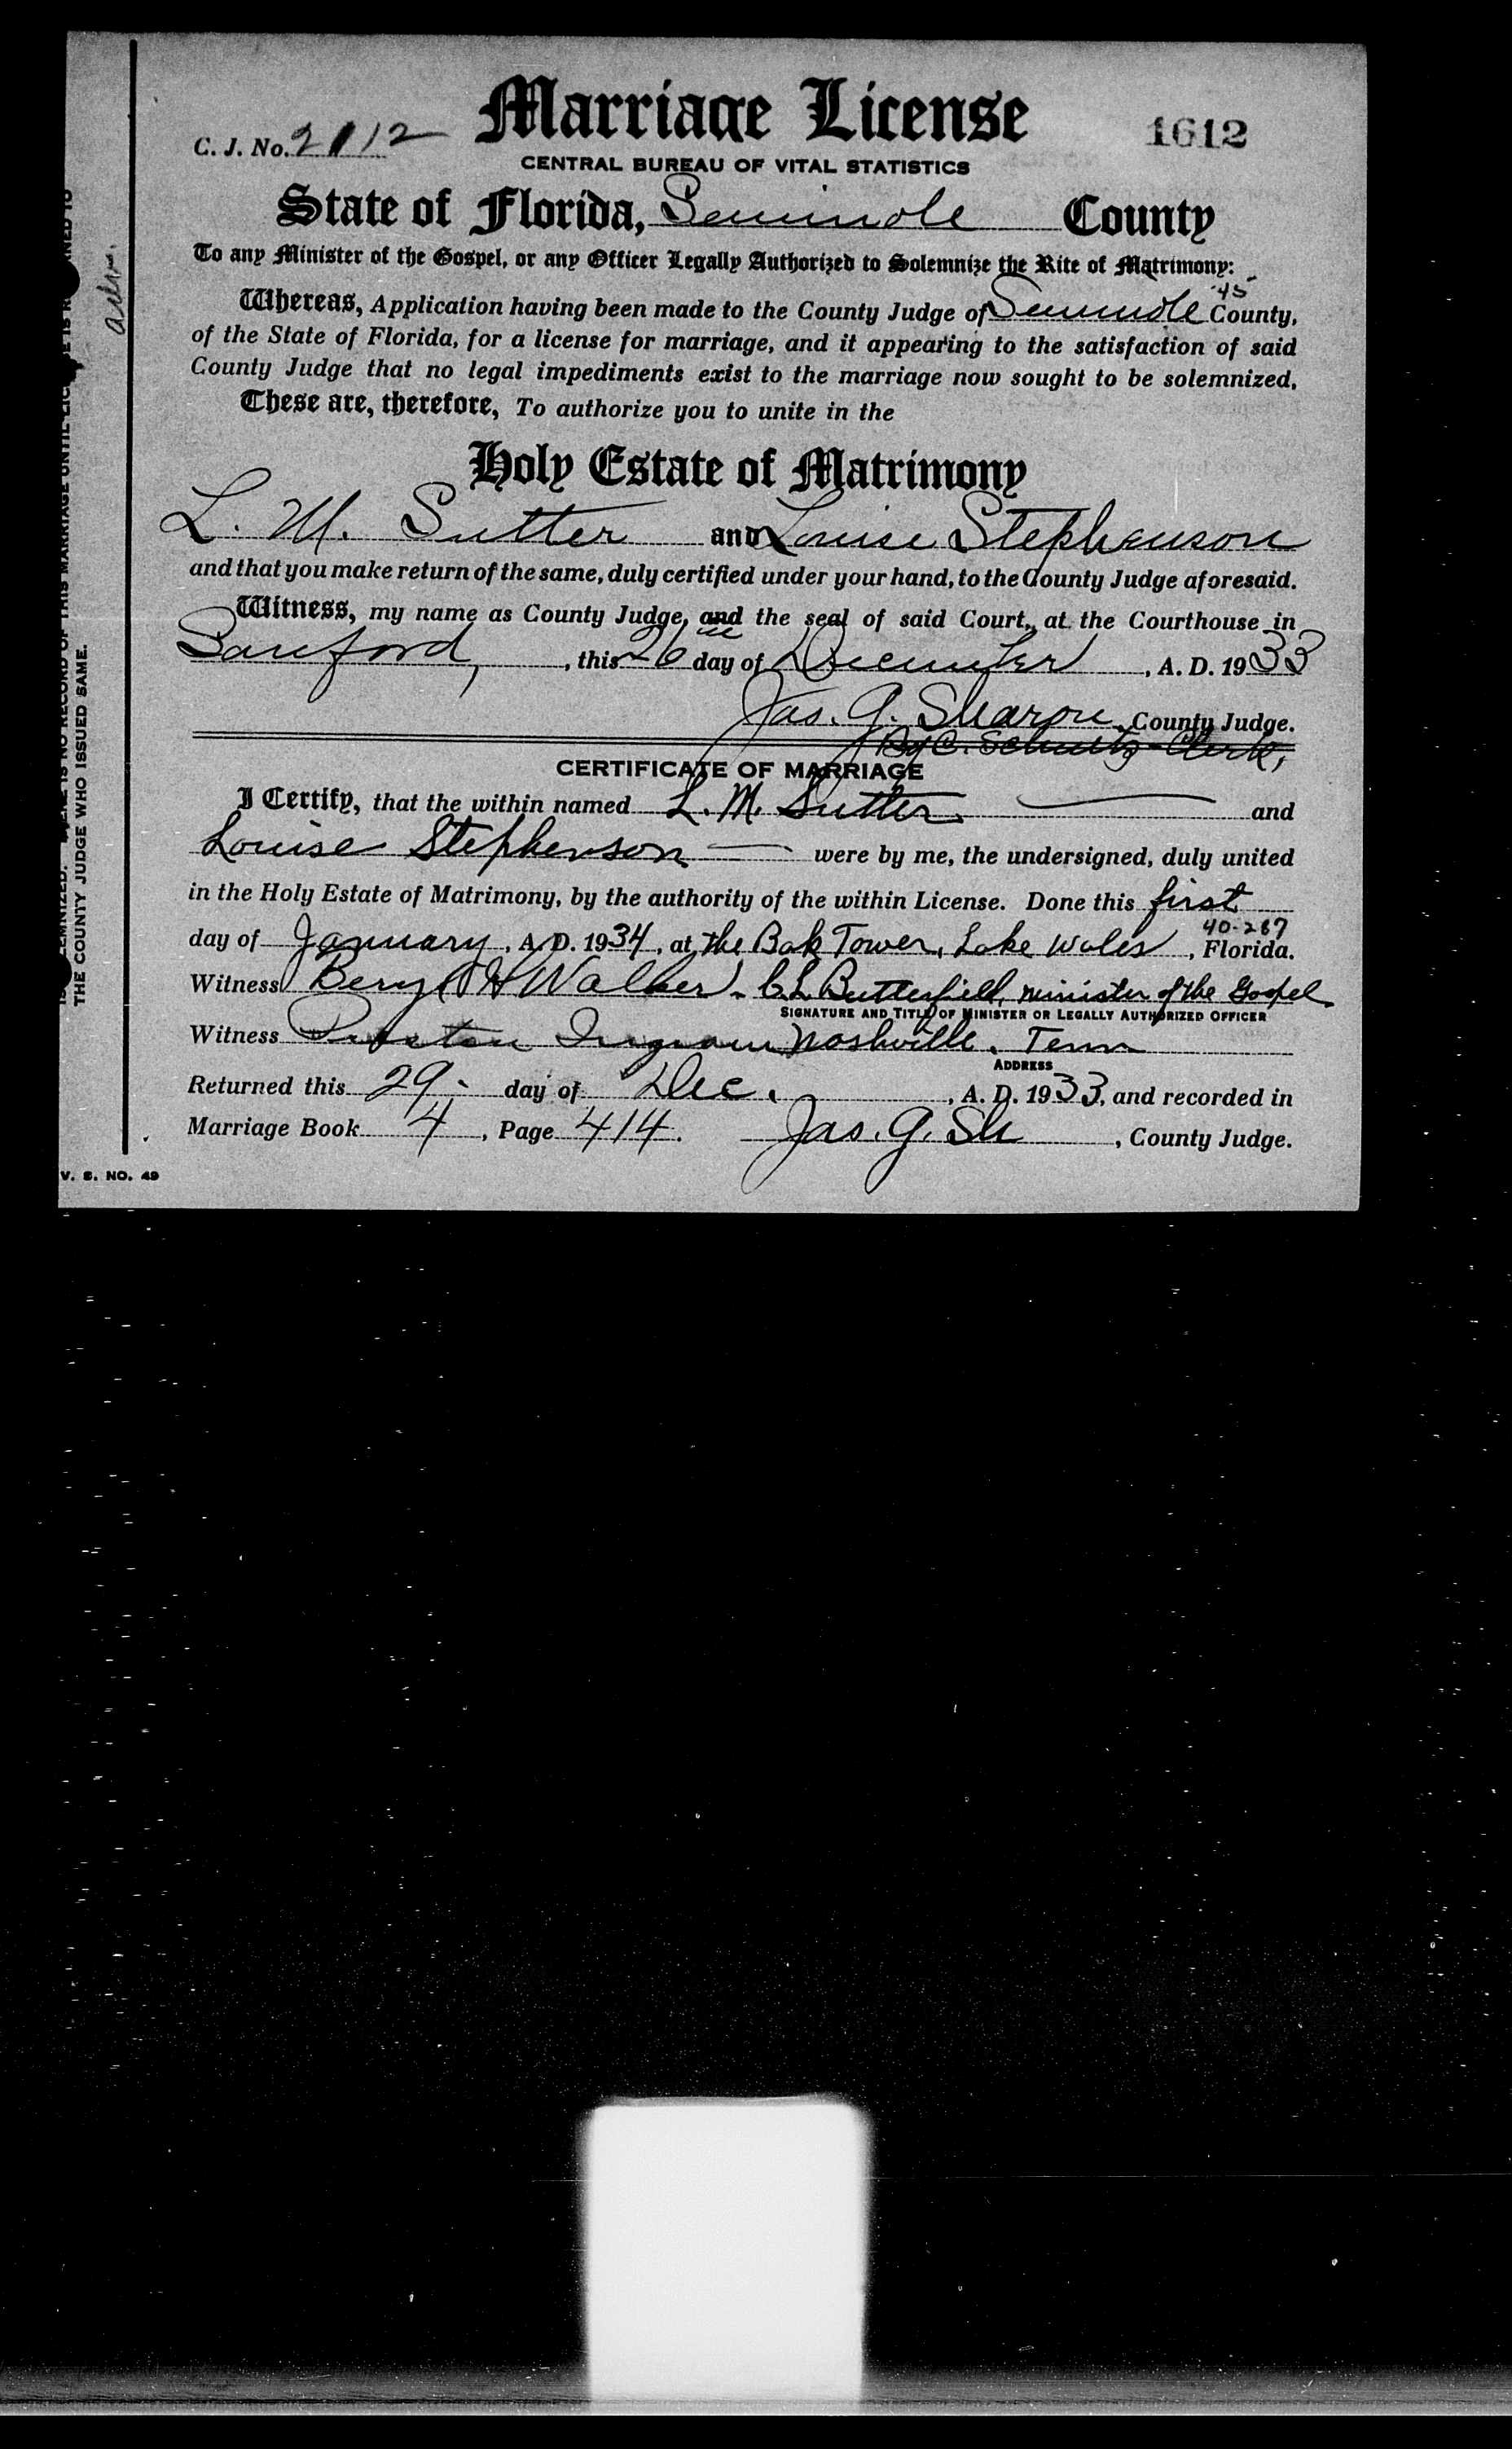 Marriage License
C. J. No. 2112
1612
CENTRAL BUREAU OF VITAL STATISTICS
State of Florida, Seminole County
To any Minister of the Gospel, or any Officer Legally Authorized to Solemnize the Rite of Matrimony:
45
Whereas, Application having been made to the County Judge of Seminole County,
of the State of Florida, for a license for marriage, and it appearing to the satisfaction of said
County Judge that no legal impediments exist to the marriage now sought to be solemnized,
These are, therefore, To authorize you to unite in the
Holy Estate of Matrimony
L. M. Sutter and Louise Stephenson
and that you make return of the same, duly certified under your hand, to the County Judge aforesaid.
Witness, my name as County Judge, and the seal of said Court, at the Courthouse in
Sanford, , this 26 day of December , A. D. 1933
Jas. G. Sharon, County Judge.
By C. Schmitz Clerk,
CERTIFICATE OF MARRIAGE
I Certify, that the within named L. M. Sutter and
Louise Stephenson were by me, the undersigned, duly united
in the Holy Estate of Matrimony, by the authority of the within License. Done this first
40-267
day of January, A. D. 1934, at the Bok Tower, Lake Wales, Florida.
Witness Beryl H Walker C L Butterfield, minister of the Gospel
SIGNATURE AND TITLE OF MINISTER OR LEGALLY AUTHORIZED OFFICER
Witness Preston Ingram Nashville, Tenn
ADDRESS
Returned this 29. day of Dec. , A. D. 1933, and recorded in
Marriage Book 4, Page 414. Jas. G. Sh , County Judge.
V. S. NO. 49
OF THIS MARRIAGE UNTIL
THE COUNTY JUDGE WHO ISSUED SAME.